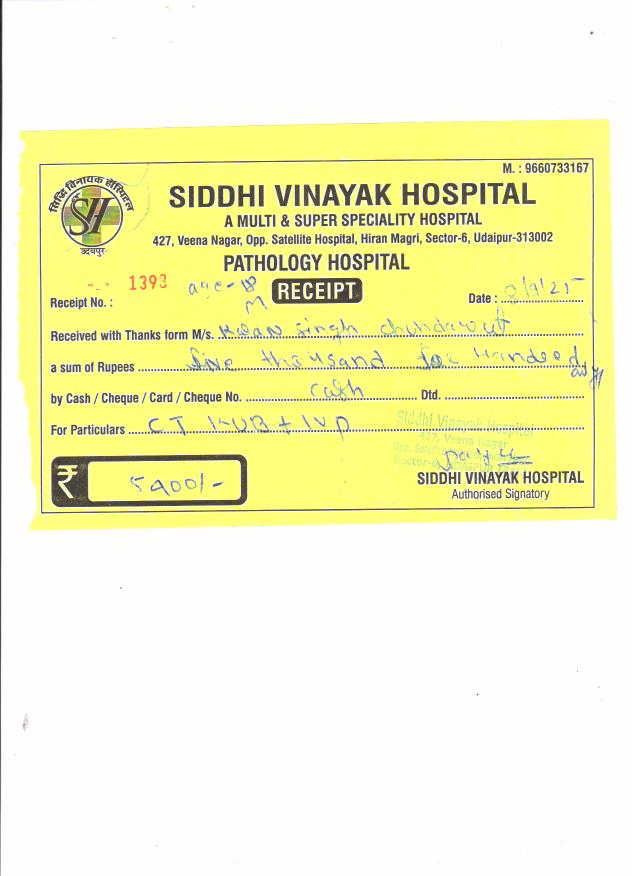 M. : 9660733167
सिद्धि विनायक हॉस्पिटल
SH
उदयपुर
SIDDHI VINAYAK HOSPITAL
A MULTI & SUPER SPECIALITY HOSPITAL
427, Veena Nagar, Opp. Satellite Hospital, Hiran Magri, Sector-6, Udaipur-313002
PATHOLOGY HOSPITAL
1393 age - 18
M
RECEIPT
Receipt No. : Date : 8/9/25
Received with Thanks form M/s. Singh chundawat
a sum of Rupees five thousand Handeed
by Cash / Cheque / Card / Cheque No. cash Dtd.
For Particulars CT KUB + IVP
Siddhi Vinayak Hospital
427, Veena Nagar
Opp. Satellite
Sector-6, UDAIPUR
₹ 5900/-
SIDDHI VINAYAK HOSPITAL
Authorised Signatory